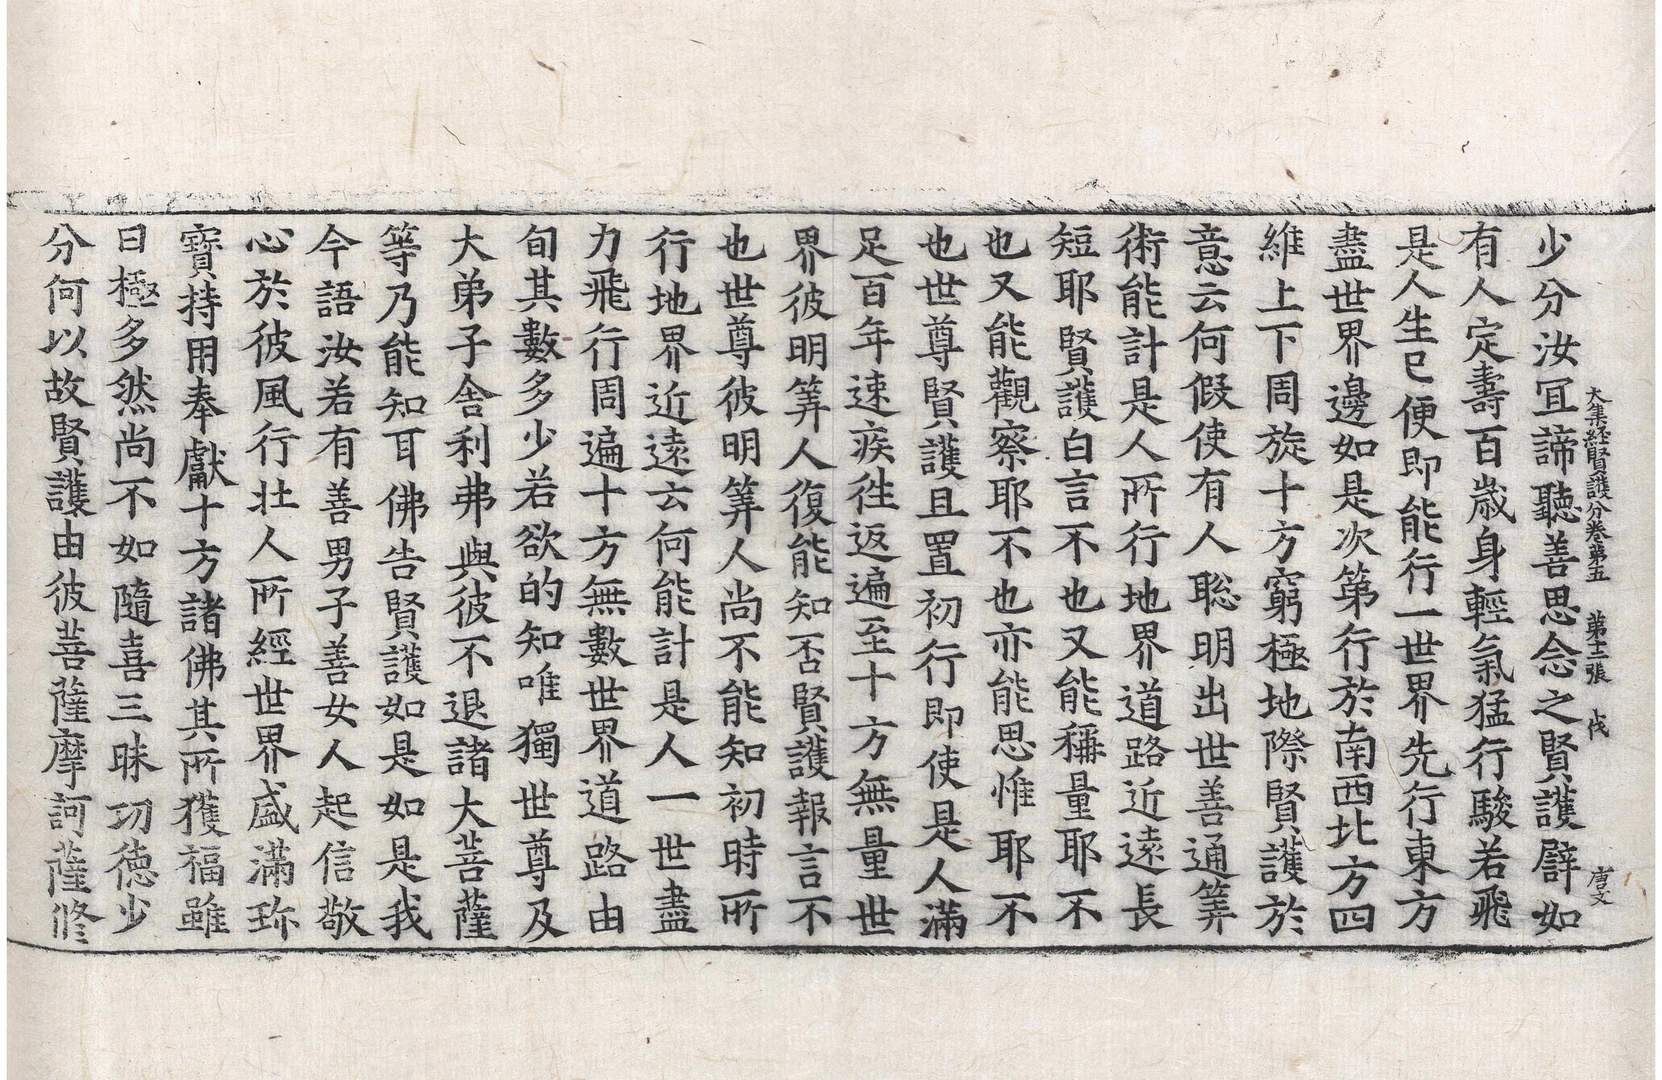 大集経賢護分卷第五 第十二張 伐 唐文
少分汝冝諦聽善思念之賢護譬如
有人定壽百歳身輕氣猛行駿若飛
是人生已便即能行一世界先行東方
盡世界邊如是次第行於南西北方四
維上下周旋十方窮極地際賢護於
意云何假使有人聡明出世善通筭
術能計是人所行地界道路近遠長
短耶賢護白言不也又能稱量耶不
也又能觀察耶不也亦能思惟耶不
也世尊賢護且置初行即使是人滿
足百年速疾徃返遍至十方無量世
界彼明筭人復能知否賢護報言不
也世尊彼明筭人尚不能知初時所
行地界近遠云何能計是人一世盡
力飛行周遍十方無數世界道路由
旬其數多少若欲的知唯獨世尊及
大弟子舍利弗與彼不退諸大菩薩
等乃能知耳佛告賢護如是如是我
今語汝若有善男子善女人起信敬
心於彼風行壮人所經世界盛滿珎
寶持用奉獻十方諸佛其所獲福雖
曰極多然尚不如隨喜三昧功徳少
分何以故賢護由彼菩薩摩訶薩修